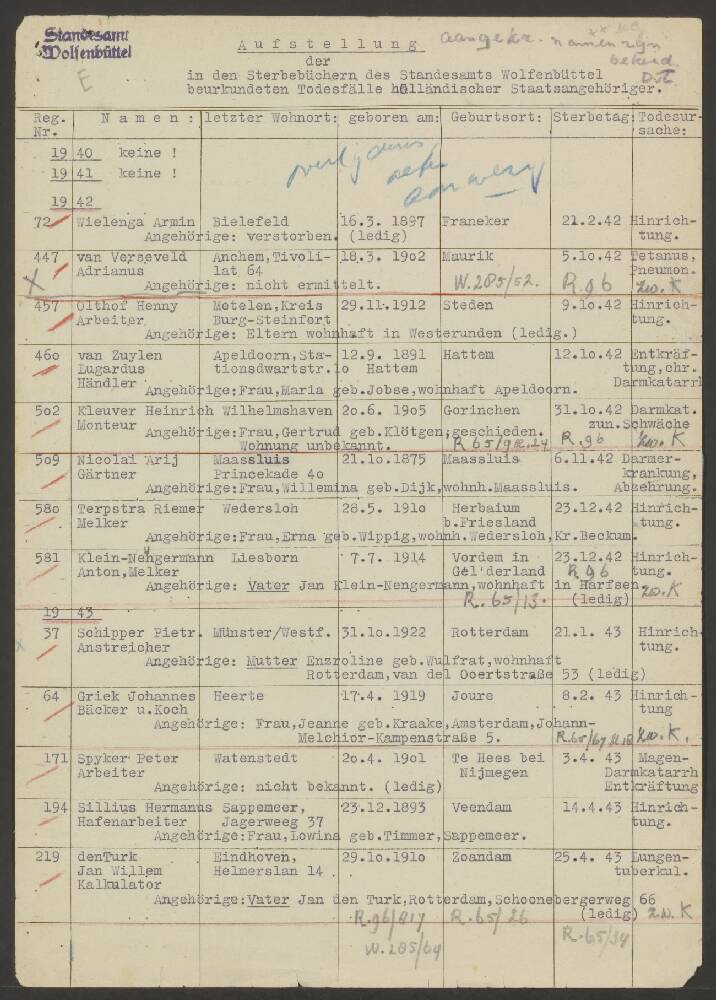 Standesamt
Wolfenbüttel
E
Aufstellung
der
in den Sterbebüchern des Standesamts Wolfenbüttel
beurkundeten Todesfälle holländischer Staatsangehöriger.
Reg. Nr. Namen: letzter Wohnort: geboren am: Geburtsort: Sterbetag: Todesur-
sache:
19 40 keine !
19 41 keine !
19 42
72 Wielenga Armin Bielefeld 16.3. 1897 Franeker 21.2.42 Hinrich-
Angehörige: verstorben. (ledig) tung.
447 van Verseveld Anchem,Tivoli- 18.3. 1902 Maurik 5.10.42 Tetanus,
Adrianus lat 64 Pneumon.
Angehörige: nicht ermittelt. W.285/52. R.96 zw. K
457 Olthof Henny Metelen,Kreis 29.11.1912 Steden 9.10.42 Hinrich-
Arbeiter Burg-Steinfort tung.
Angehörige: Eltern wohnhaft in Westerunden (ledig.)
460 van Zuylen Apeldoorn,Sta- 12.9. 1891 Hattem 12.10.42 Entkräf-
Lugardus tionsdwartstr.10 Hattem tung,chr.
Händler Darmkatarrh
Angehörige:Frau,Maria geb.Jobse,wohnhaft Apeldoorn.
502 Kleuver Heinrich Wilhelmshaven 20.6. 1905 Gorinchen 31.10.42 Darmkat.
Monteur zun.Schwäche
Angehörige:Frau,Gertrud geb.Klötgen;geschieden.
Wohnung unbekannt. R.96 zw. K
509 Nicolai Arij Maassluis 21.10.1875 Maassluis 6.11.42 Darmer-
Gärtner Princekade 40 krankung,
Angehörige:Frau,Willemina geb.Dijk,wohnh.Maassluis. Abzehrung.
580 Terpstra Riemer Wedersloh 28.5. 1910 Herbaium 23.12.42 Hinrich-
Melker b.Friesland tung.
Angehörige:Frau,Erna geb.Wippig,wohnh.Wedersloh,Kr.Beckum.
581 Klein-Nengermann Liesborn 7.7. 1914 Vordem in 23.12.42 Hinrich-
Anton,Melker Gel'derland R.96 tung.
Angehörige: Vater Jan Klein-Nengermann,wohnhaft in Harfsen
R.65/13. (ledig) zw. K
19 43
37 Schipper Pietr. Münster/Westf. 31.10.1922 Rotterdam 21.1. 43 Hinrich-
Anstreicher tung.
Angehörige: Mutter Enzroline geb.Wulfrat,wohnhaft
Rotterdam,van del Ooertstraße 53 (ledig)
64 Griek Johannes Heerte 17.4. 1919 Joure 8.2. 43 Hinrich-
Bäcker u.Koch tung
Angehörige: Frau,Jeanne geb.Kraake,Amsterdam,Johann-
Melchior-Kampenstraße 5. zw. K.
171 Spyker Peter Watenstedt 20.4. 1901 Te Hees bei 3.4. 43 Magen-
Arbeiter Nijmegen Darmkatarrh
Angehörige: nicht bekannt. (ledig) Entkräftung
194 Sillius Hermanus Sappemeer, 23.12.1893 Veendam 14.4.43 Hinrich-
Hafenarbeiter Jagerweeg 37 tung.
Angehörige:Frau,Lowina geb.Timmer,Sappemeer.
219 denTurk Eindhoven, 29.10.1910 Zoandam 25.4. 43 Lungen-
Jan Willem Helmerslan 14 tuberkul.
Kalkulator
Angehörige:Vater Jan den Turk,Rotterdam,Schoonebergerweg 66
R.96/817 R.65/26 (ledig) z.w. K
W.285/64 R.65/34